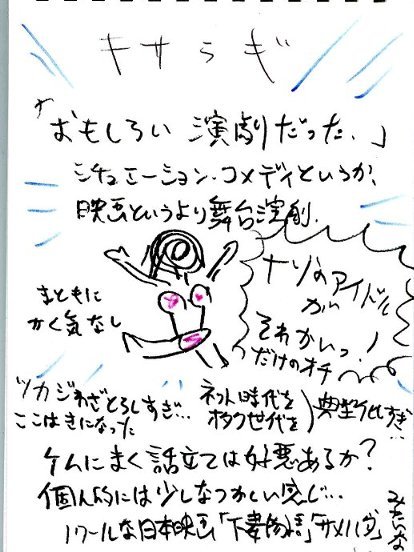 キサラギ
「おもしろい 演劇だった.」
シチュエーション.コメディというか、
映画というより舞台演劇.
まともに
かく気なし
ナゾのアイドル
が
それかいっ!
だけのオチ
ツカジわざとらしすぎ…
ここはきになった
ネット時代を
オタク世代を
典型化しすぎ…
ケムにまく話立ては好悪あるか?
個人的には少しなつかしい感じ…
ノワールな日本映画「下妻物語」「サメハダ」
みたいな